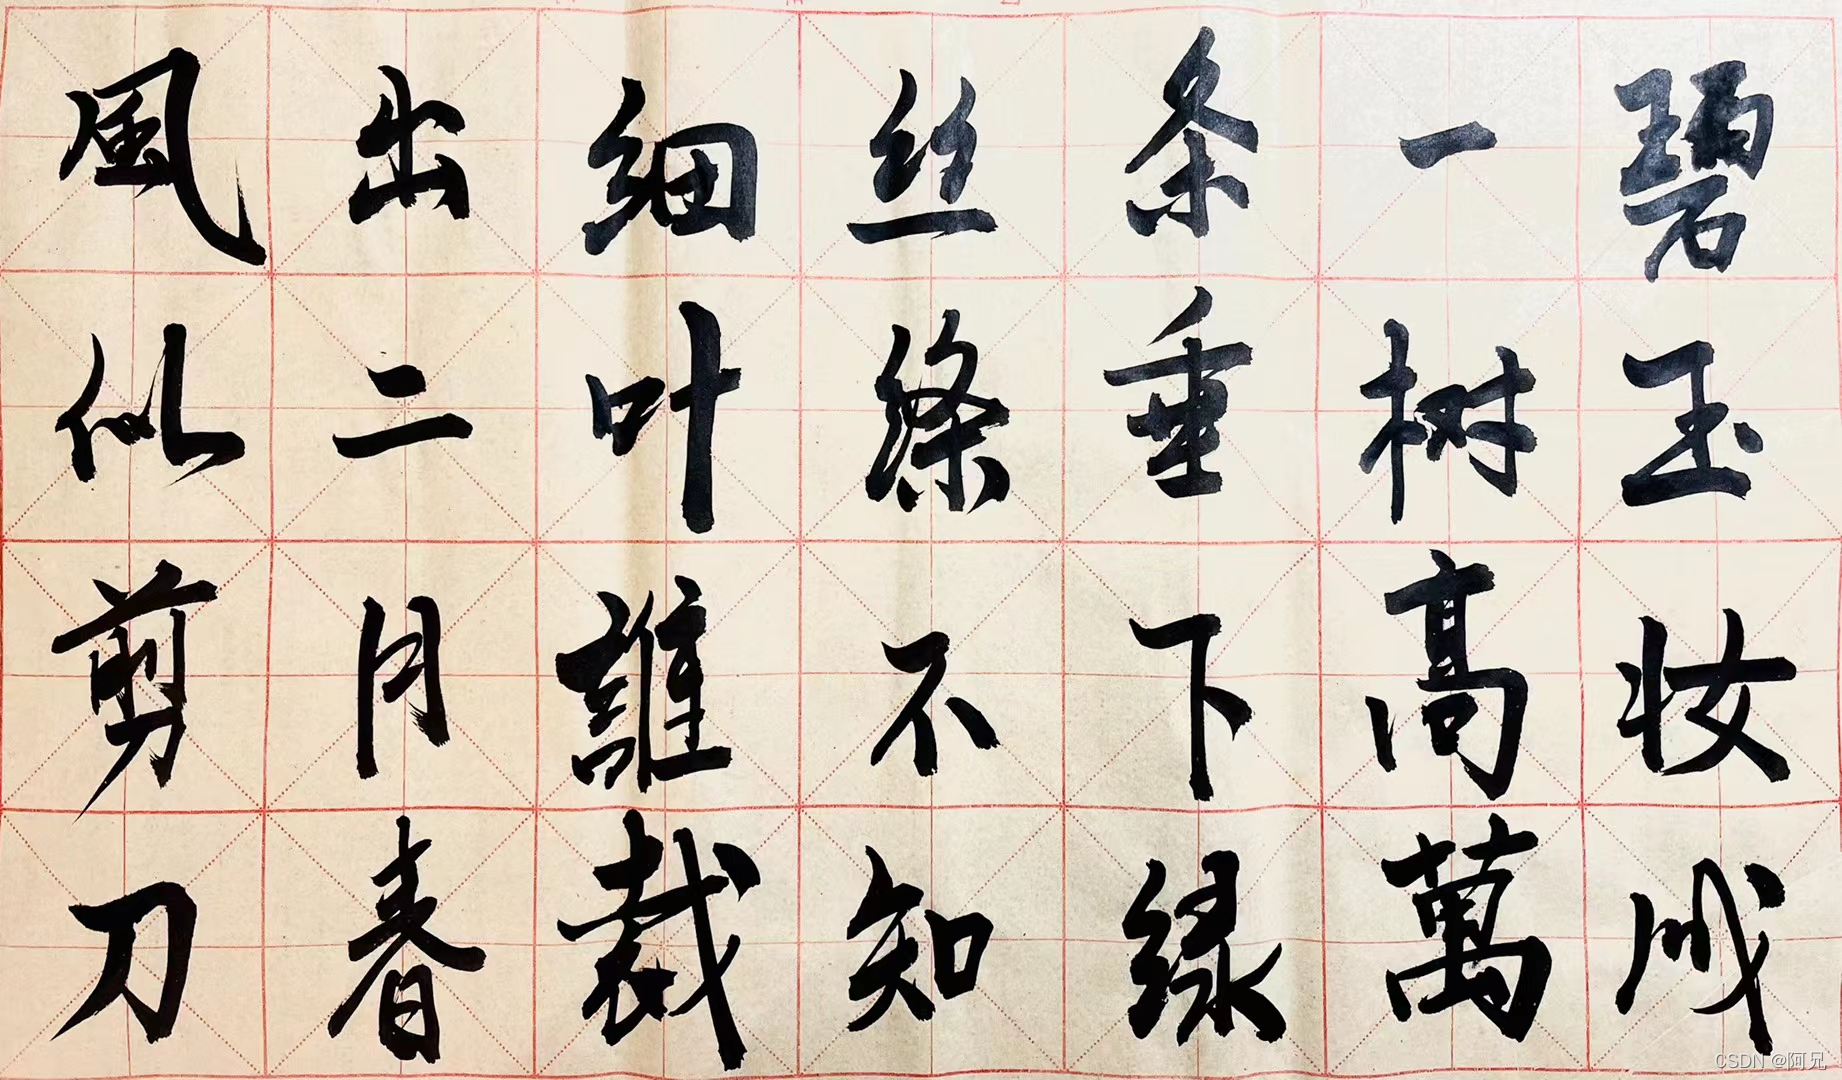 碧玉妆成
一树高萬
条垂下绿
丝绦不知
细叶誰裁
出二月春
風似剪刀
CSDN @阿兄